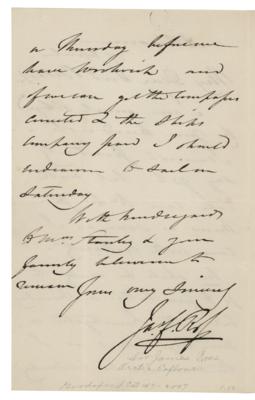 a Thursday before we
leave Woolwich and
if we can get the Compasses
corrected & the Ships
Company paid I should
endeavour to sail on
Saturday
With kind regards
to Mrs Stanley & your
family believe me to
remain Yours very Sincerely
Jas. C. Ross
Sir James Ross
Arctic Explorer